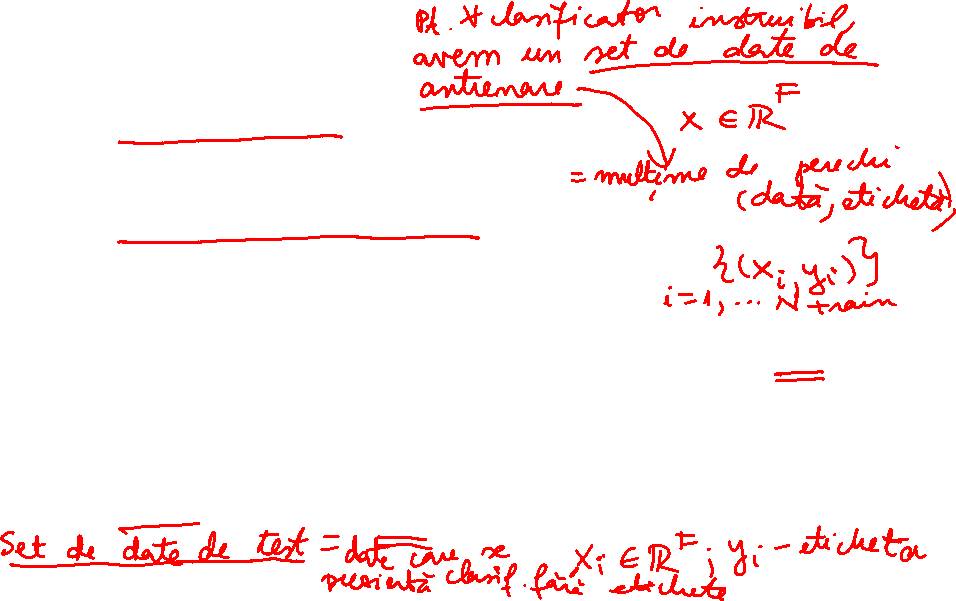 Pt. ∀ clasificator instruibil,
avem un set de date de
antrenare
x ∈ ℝ^F
= mulțime de perechi
(dată, etichetă),
{(x_i, y_i)}
i=1, ... N train
Set de date de test = date care se x_i ∈ ℝ^F ; y_i - etichetă
prezintă clasif. fără etichete